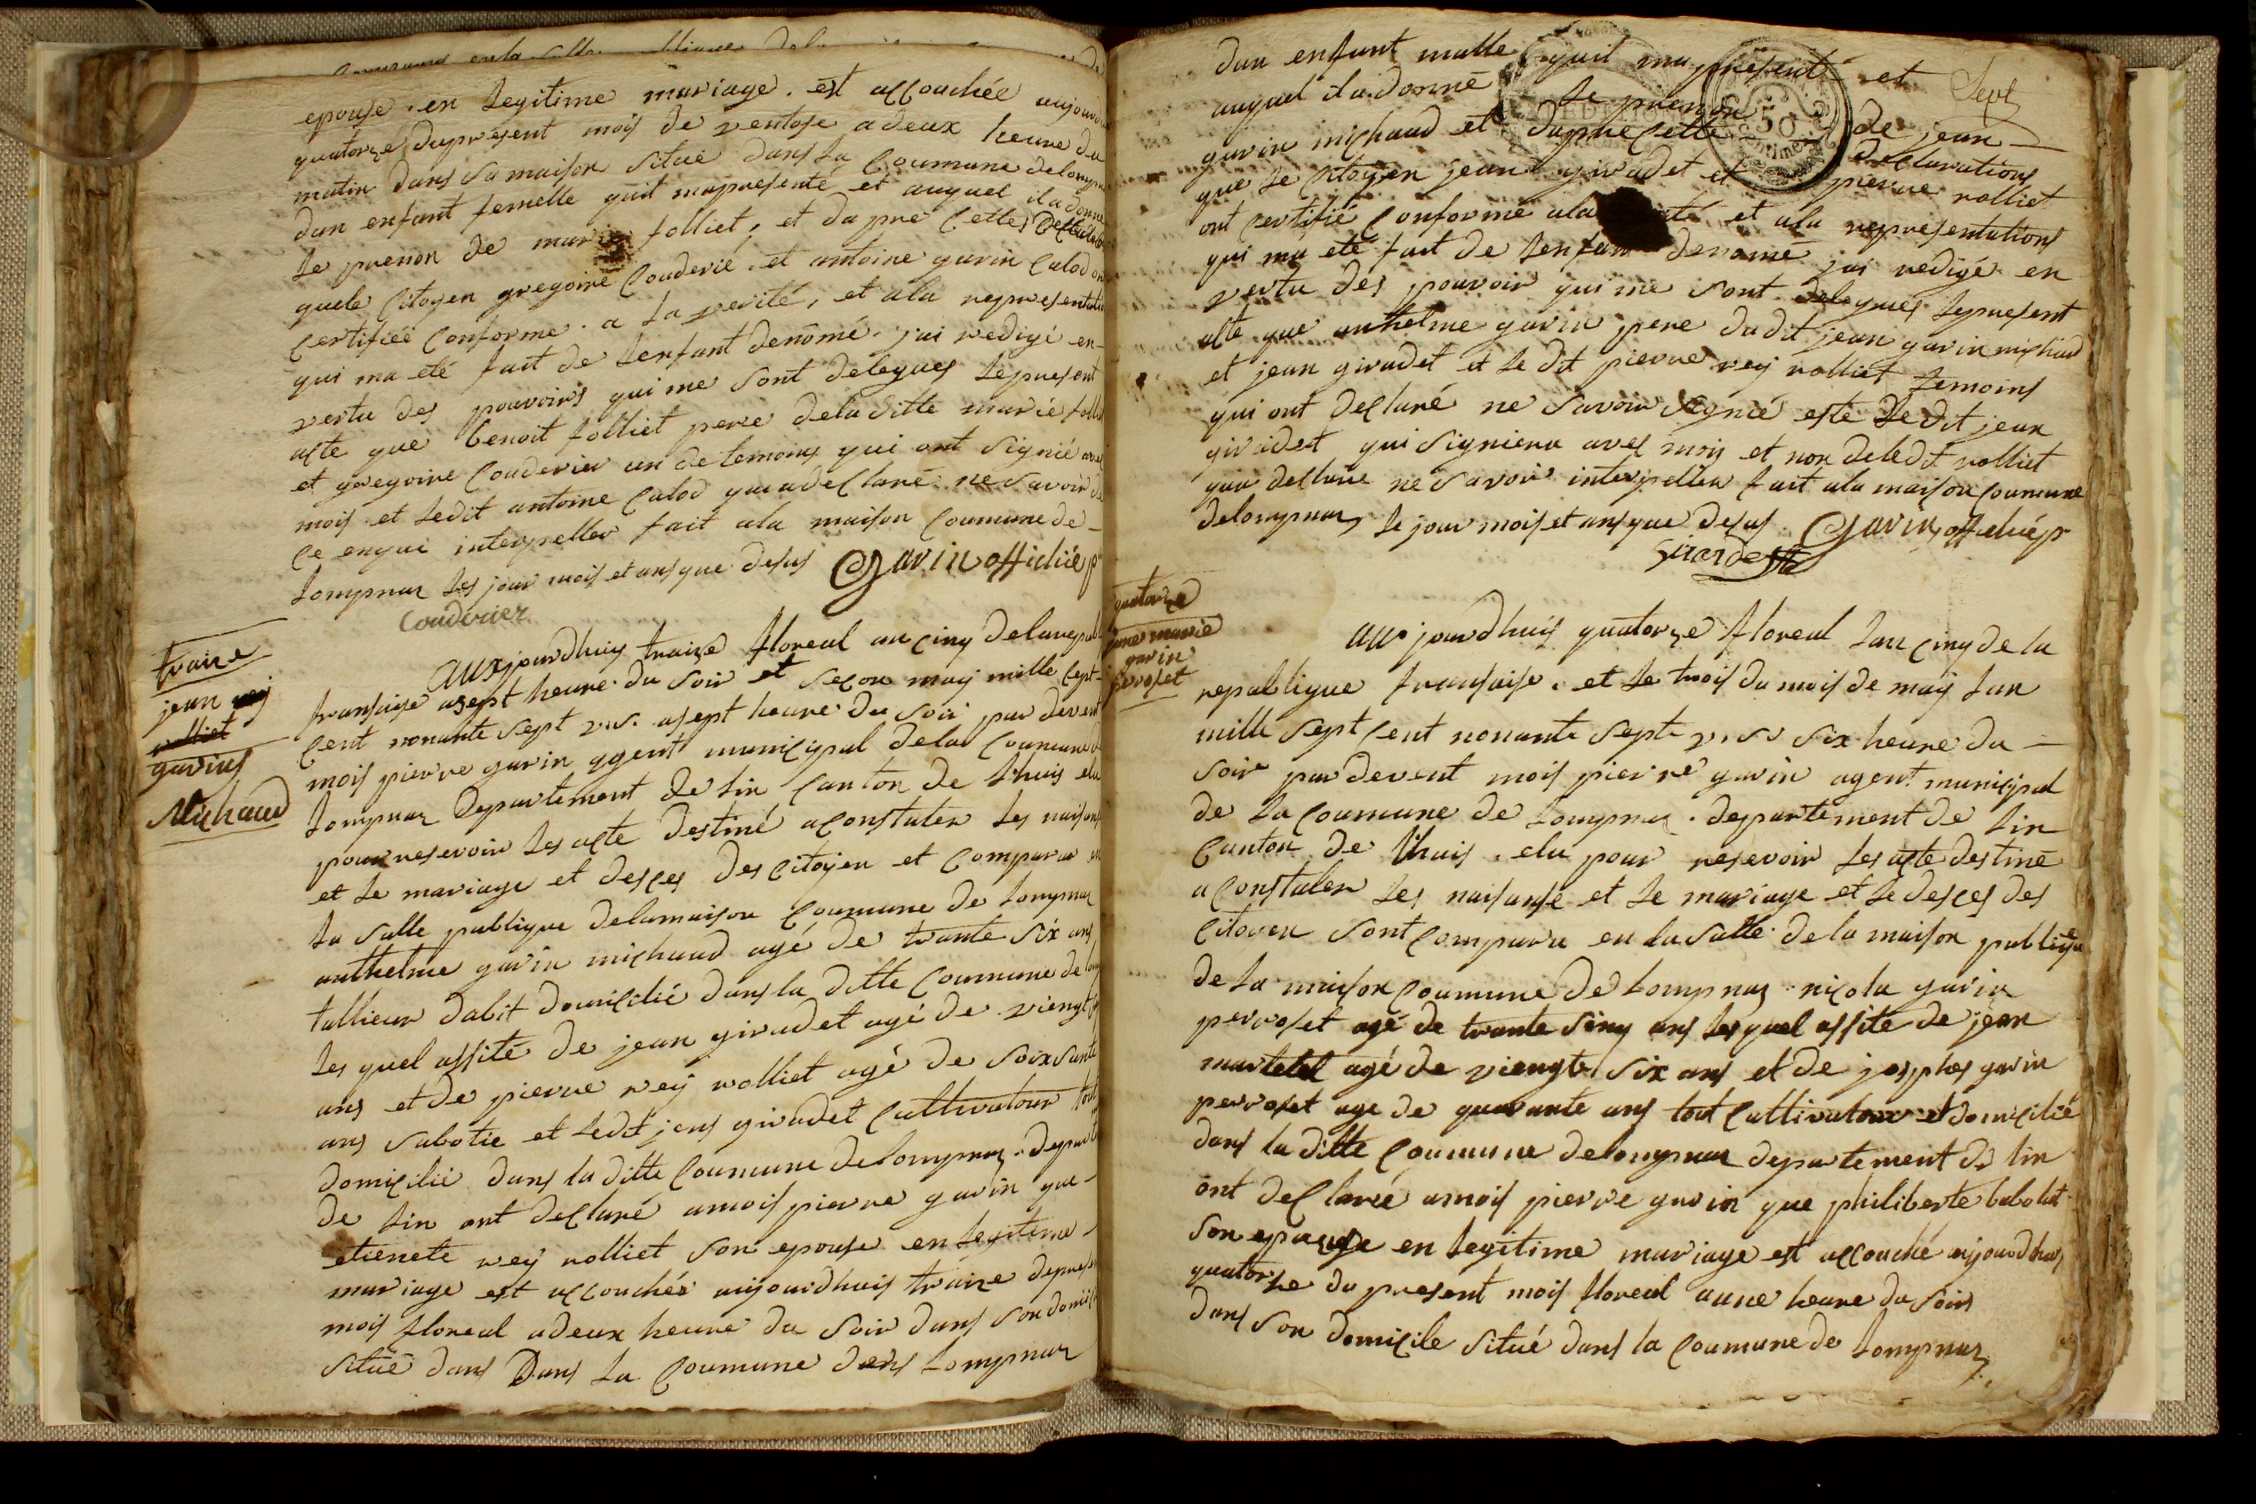 epouse en legitime mariage est accouchée aujourdh
quatorze dupresent mois de ventose a deux heure du
matin dans sa maison situé dans la Coumune delomp
dun enfant femelle quil mapresenté et auquel il a donné
le prenon de marie folliet, et dapre cette
quele Citoyen gregoire Couderié et antoine gavin Calod ont
certifiéé conforme a la verité, et ala representation
qui ma eté fait de lenfant denomé jai redigé en
vertu des pouvoirs qui me sont delegues lepresent
acte que benoit folliet pere dela ditte marie folliet
et gregoire Couderier un de temoins qui ont signié avec
mois et ledit antoine Calod qui adeClaré ne savoir de
ce enqui interpeller fait ala maison Coumune de
lompnaz les jour mois et ans que desus Gavin officiié p
Couderier
traize
jean rey
rolliet
gavins
Michaud
aujourdhuy traize floreal an cinq delarepubl
fransaise asept heure du soir et secon may mille sept
cent nonante sept v.s. asept heure du soir par devent
mois pierre gavin agent municipal dela Coumune
lompnaz Departement de lin canton de lhuis elu
pour resevoir les acte destiné aconstater les naisans
et le mariage et desces des citoyen et comparu en
la salle publique delamaison Coumune de lompnaz
anthelme gavin michaud agé de trante six ans
tallieur dabit domicilié dans la ditte Coumune de lom
les quel assité de jean giradet agé de viengt
ans et de pierre rey rolliet agé de soixsante
ans sabotie et ledit jens giradet Cultivatour tout
domicilié dans la ditte Coumune delompnaz depart
de lin ont declaré amois pierre gavin que
etienete rey rolliet son epouse en legitime
mariage est accouchéé aujourdhuis traize depresen
mois floreal adeux heure du soir dans son domicil
situé dans Dans la Coumune dans lompnaz
Sept
dun enfant malle quil ma presenté et
auquel il a donné le prenon de jean
gavin michaud et dapre cette declarations
que le citoyen jean giradet et pierre rolliet
ont certifié conforme ala et ala representations
qui ma eté fait de lenfant denomé jai redigé en
vertu des pouvoir qui me sont delegues lepresent
acte que anthelme gavin pere dudit jean gavin michaud
et jean giradet et le dit pierre rey rolliet temoins
qui ont declaré ne savoir signié este ledit jean
giradet qui signiera avec mois et non deledit rolliet
qui declare ne savoir interpeller fait ala maison coumune
delompnaz le jour mois et ans que desus Gavin off cluép
Girardet
50 Centimes
quatorze
marie
gavin
perroset
aujourdhuis quatorze floreal lan cinq de la
republique fransaise et le trois du mois de may lan
mille sept cent nonante sept v.s. six heure du
soir par devent mois pierre gavin agent municipal
de la Coumune de lompnaz departement de lin
Canton de lhuis elu pour resevoir les acte destiné
a constater les naisanse et le mariage et le desces des
Citoyen sont comparu en la salle de la maison publique
de la maison Coumune de lompnaz nicola gavin
perroset agé de trante sinq ans lesquel assité de jean
martelet agé de viengte six ans et de josphes gavin
perroset age de quarante ans tout cultivatour et domicilié
dans la ditte Coumune delompnaz departement de lin
ont declaré amois pierre gavin que philiberte babolat
son epouse en legitime mariage est accouché aujourdhuy
quatorze du present mois floreal aune heure du soir
dans son domicile situé dans la Coumune de lompnaz